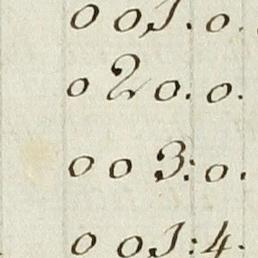 0 01. 0.
0 20. 0.
0 0 3: 0.
0 01: 4.